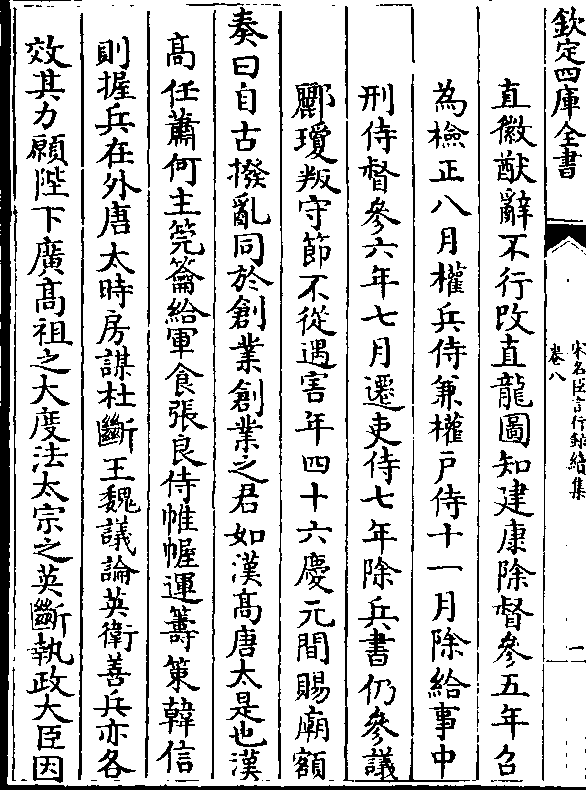 欽定四庫全書
宋名臣言行錄續集
卷八
一
直徽猷辭不行改直龍圖知建康除督參五年召
為檢正八月權兵侍兼權戶侍十一月除給事中
刑侍督參六年七月遷吏侍七年除兵書仍參議
酈瓊叛守節不從遇害年四十六慶元間賜廟額
奏曰自古撥亂同於創業創業之君如漢髙唐太是也漢
髙任蕭何主筦籥給軍食張良侍帷幄運籌策韓信
則握兵在外唐太時房謀杜斷王魏議論英衛善兵亦各
效其力願陛下廣髙祖之大度法太宗之英斷執政大臣因